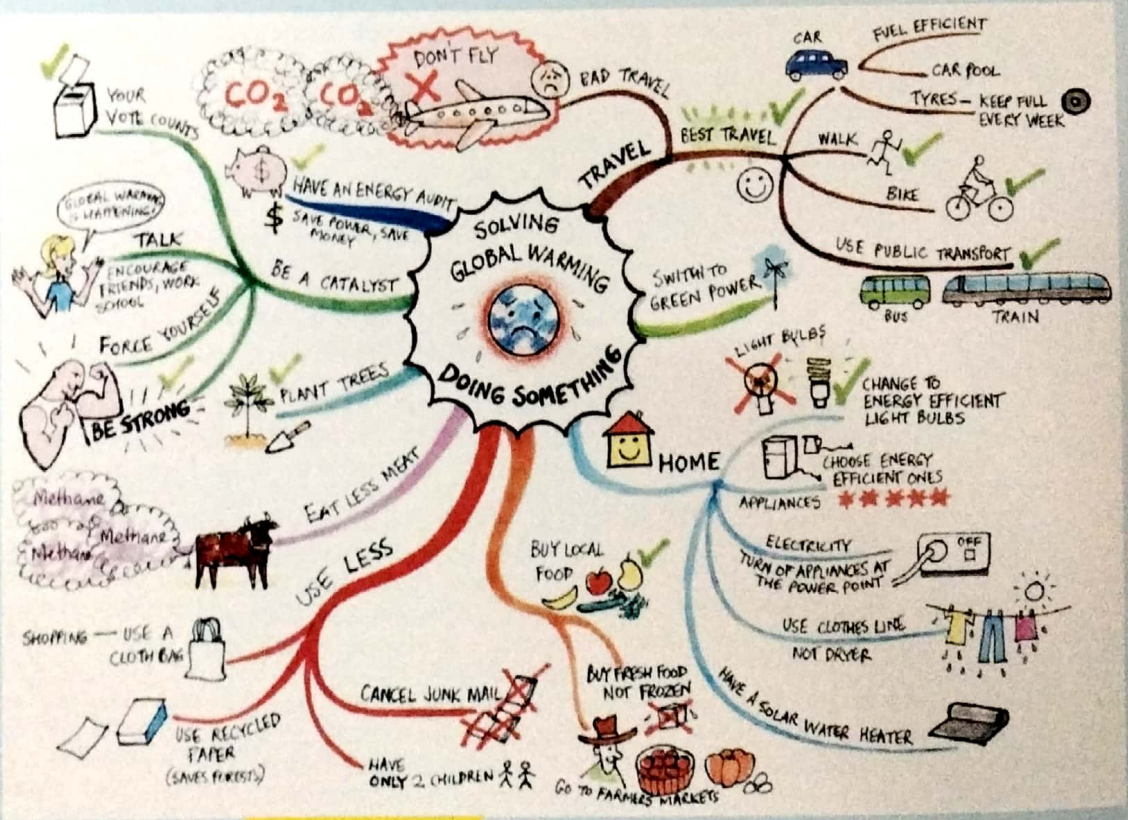 SOLVING
GLOBAL WARMING
DOING SOMETHING
TRAVEL
BAD TRAVEL
DON'T FLY
CO2
CO2
BEST TRAVEL
CAR
FUEL EFFICIENT
CAR POOL
TYRES — KEEP FULL
EVERY WEEK
WALK
BIKE
USE PUBLIC TRANSPORT
BUS
TRAIN
SWITH TO
GREEN POWER
HOME
LIGHT BULBS
CHANGE TO
ENERGY EFFICIENT
LIGHT BULBS
APPLIANCES
CHOOSE ENERGY
EFFICIENT ONES
ELECTRICITY
TURN OF APPLIANCES AT
THE POWER POINT
OFF
USE CLOTHES LINE
NOT DRYER
HAVE A SOLAR WATER HEATER
BUY LOCAL
FOOD
BUY FRESH FOOD
NOT FROZEN
GO TO FARMERS MARKETS
USE LESS
SHOPPING — USE A
CLOTH BAG
USE RECYCLED
PAPER
(SAVES FORESTS)
CANCEL JUNK MAIL
HAVE
ONLY 2 CHILDREN
EAT LESS MEAT
Methane
Methane
Methane
PLANT TREES
BE A CATALYST
YOUR
VOTE COUNTS
TALK
ENCOURAGE
FRIENDS, WORK
SCHOOL
GLOBAL WARMING
IS HAPPENING!
FORCE YOURSELF
BE STRONG
HAVE AN ENERGY AUDIT
SAVE POWER, SAVE
MONEY
$
$